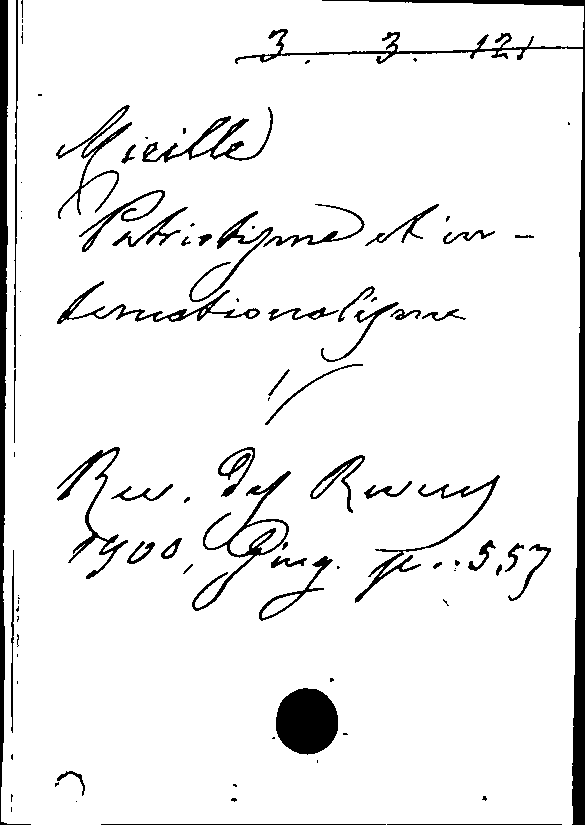 3. 3. 121
Mieille
Patriotisme et in-
ternationalisme
Rev. des Revues
1900, p. 557